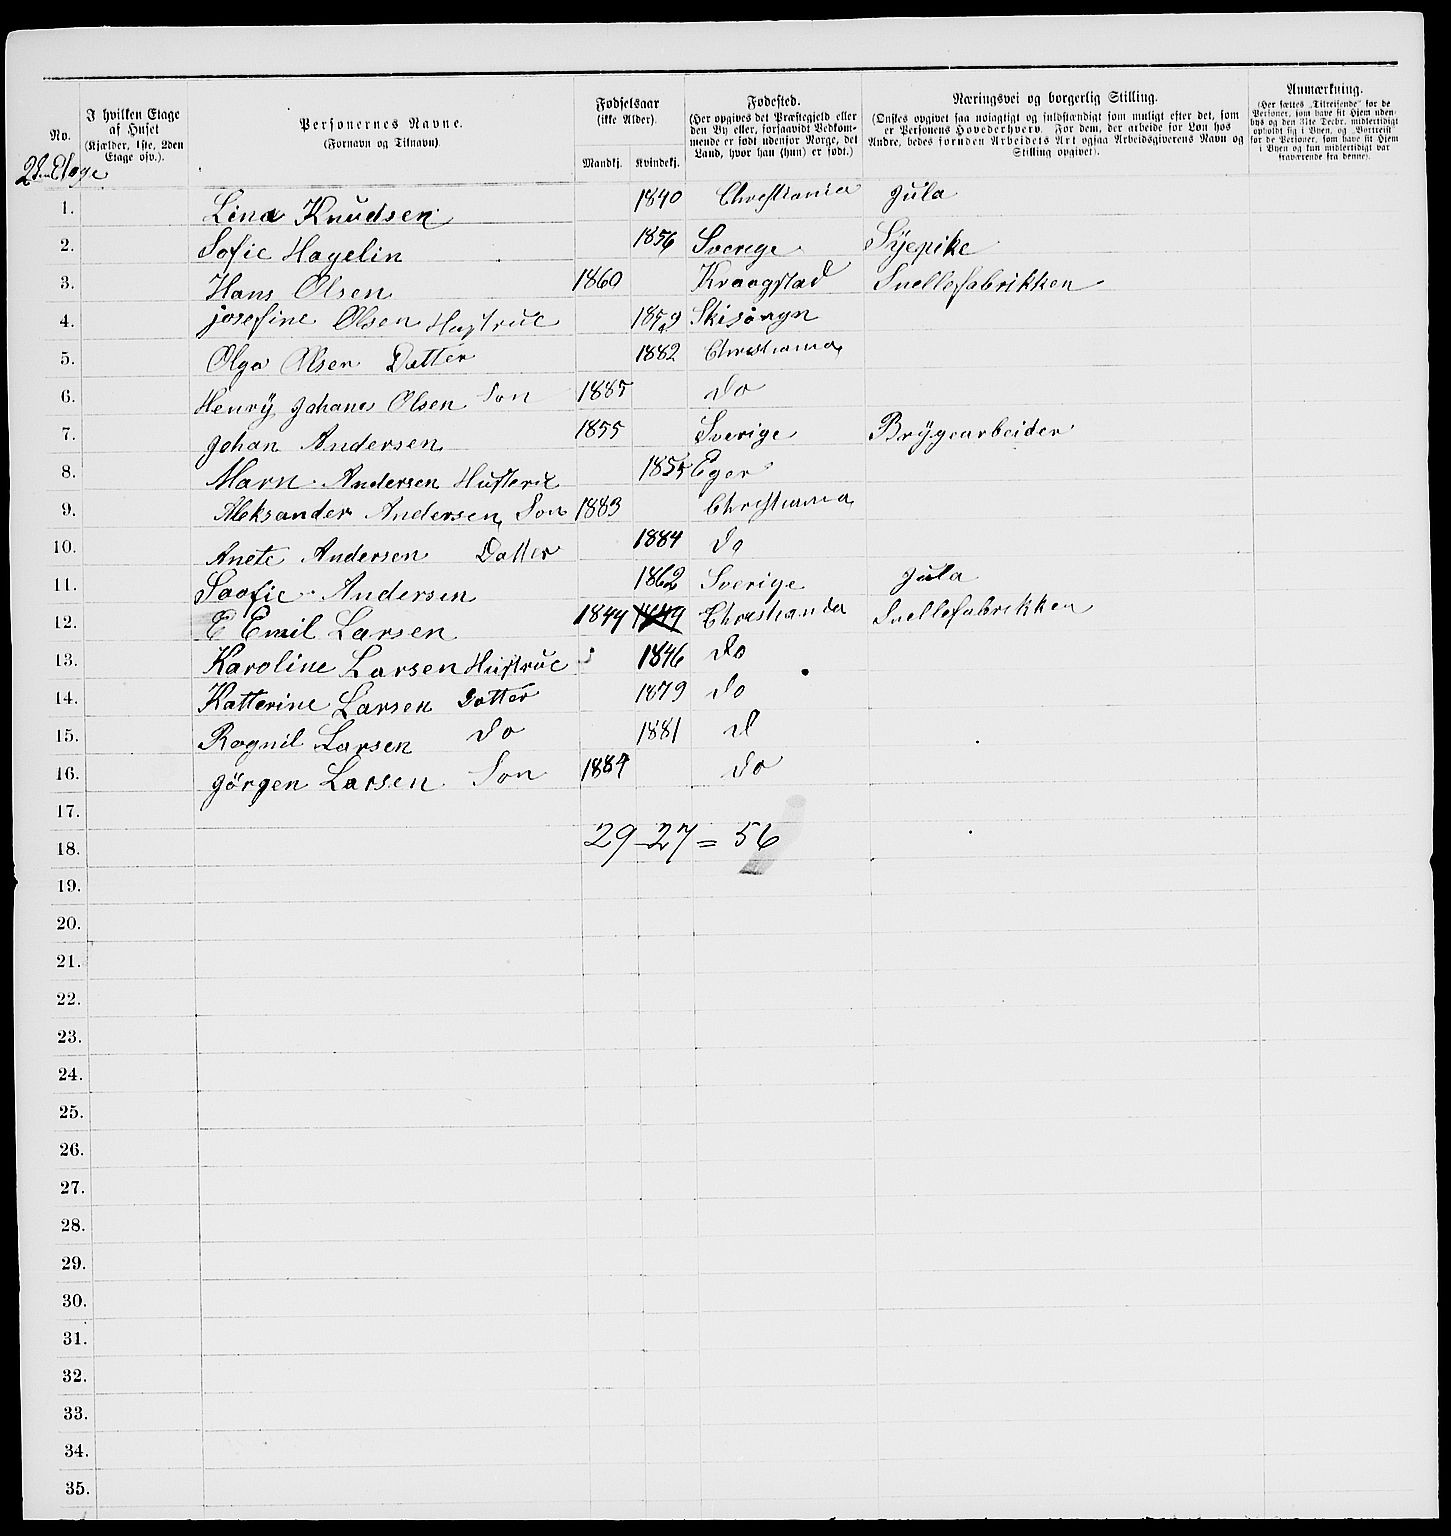 No.
I hvilken Etage af Huset (Kjælder, 1ste, 2den Etage osv.).
Personernes Navne. (Fornavn og Tilnavn)
Fødselsaar (ikke Alder). Mandkj. Kvindekj.
Fødested. (Her opgives det Præstegjeld eller den By eller, forsaavidt Vedkommende er født udenfor Norge, det Land, hvor han (hun) er født.)
Næringsvei og borgerlig Stilling. (Ønskes opgivet saa nøiagtigt og fuldstændigt som muligt efter det, som er Personens Hovederhverv. For dem, der arbeide for Løn hos Andre, bedes foruden Arbeidets Art ogsaa Arbeidsgiverens Navn og Stilling opgivet).
Anmærkning. (Her sættes „Tilreisende" for de Personer, som have sit Hjem udenbys og den 31te Decbr. midlertidigt opholdt sig i Byen, og „Bortreist" for de Personer, som have sit Hjem i Byen og kun midlertidigt var fraværende fra denne).
2den Etage
1. Lina Knudsen 1840 Christiania Jula
2. Sofie Hagelin 1856 Sverige Syepike
3. Hans Olsen 1860 Kraagstad Snellefabrikken
4. Josefine Olsen Hustrue 1859 Skisøugn
5. Olga Olsen Datter 1882 Christiania
6. Henry Johanes Olsen Son 1885 do
7. Johan Andersen 1855 Sverige Brygearbeider
8. Marn Andersen Husterue 1855 Eger
9. Aleksander Andersen Son 1883 Christiania
10. Anete Andersen Datter 1884 do
11. Saofie Andersen 1862 Sverige Jula
12. E Emil Larsen 1849 1849 Christianda Snellefabrikken
13. Karoline Larsen Hustrue 1846 do
14. Katterine Larsen Datter 1879 do
15. Ragnil Larsen do 1881 d
16. Jörgen Larsen Son 1884 do
17.
29 - 27 = 56
18.
19.
20.
21.
22.
23.
24.
25.
26.
27.
28.
29.
30.
31.
32.
33.
34.
35.